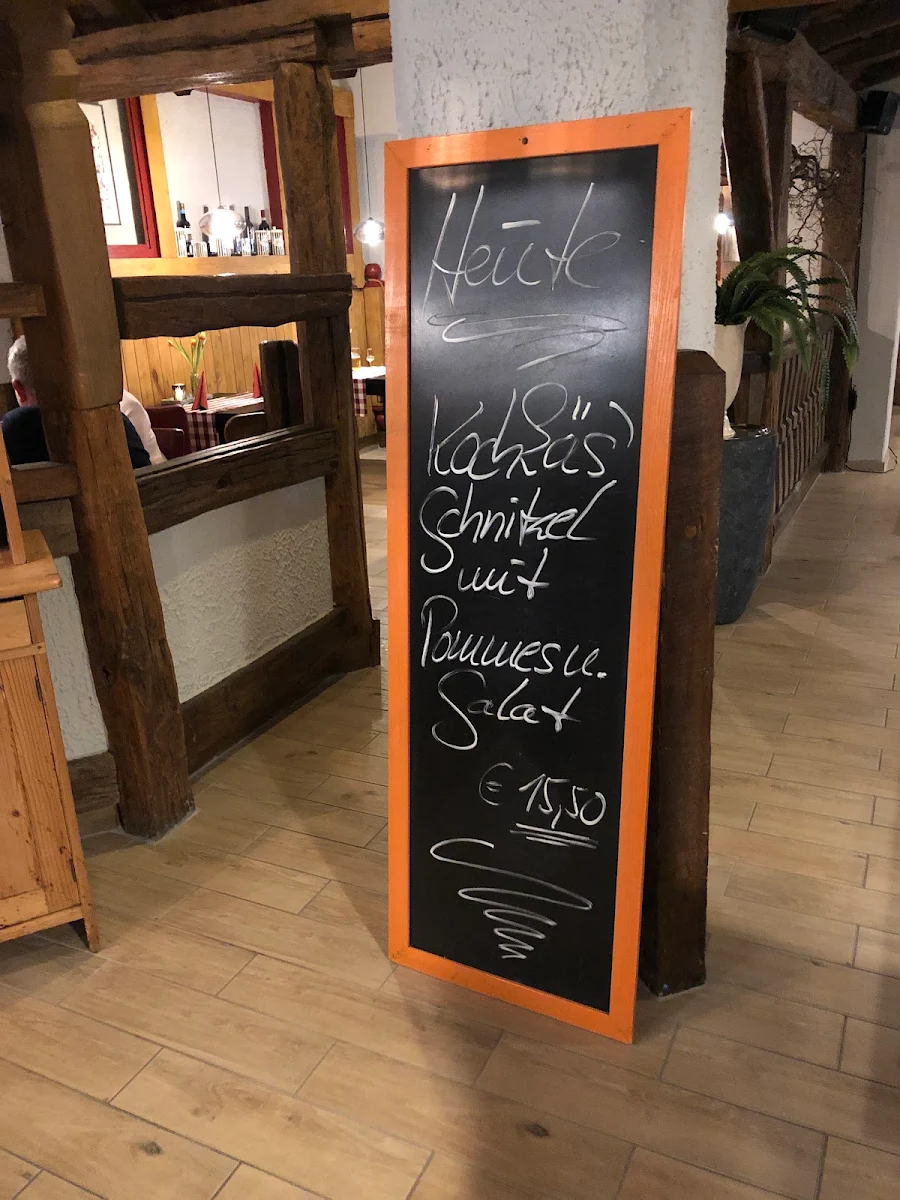 Heute
Kochkäs'
Schnitzel
mit
Pommes u.
Salat
€ 15,50